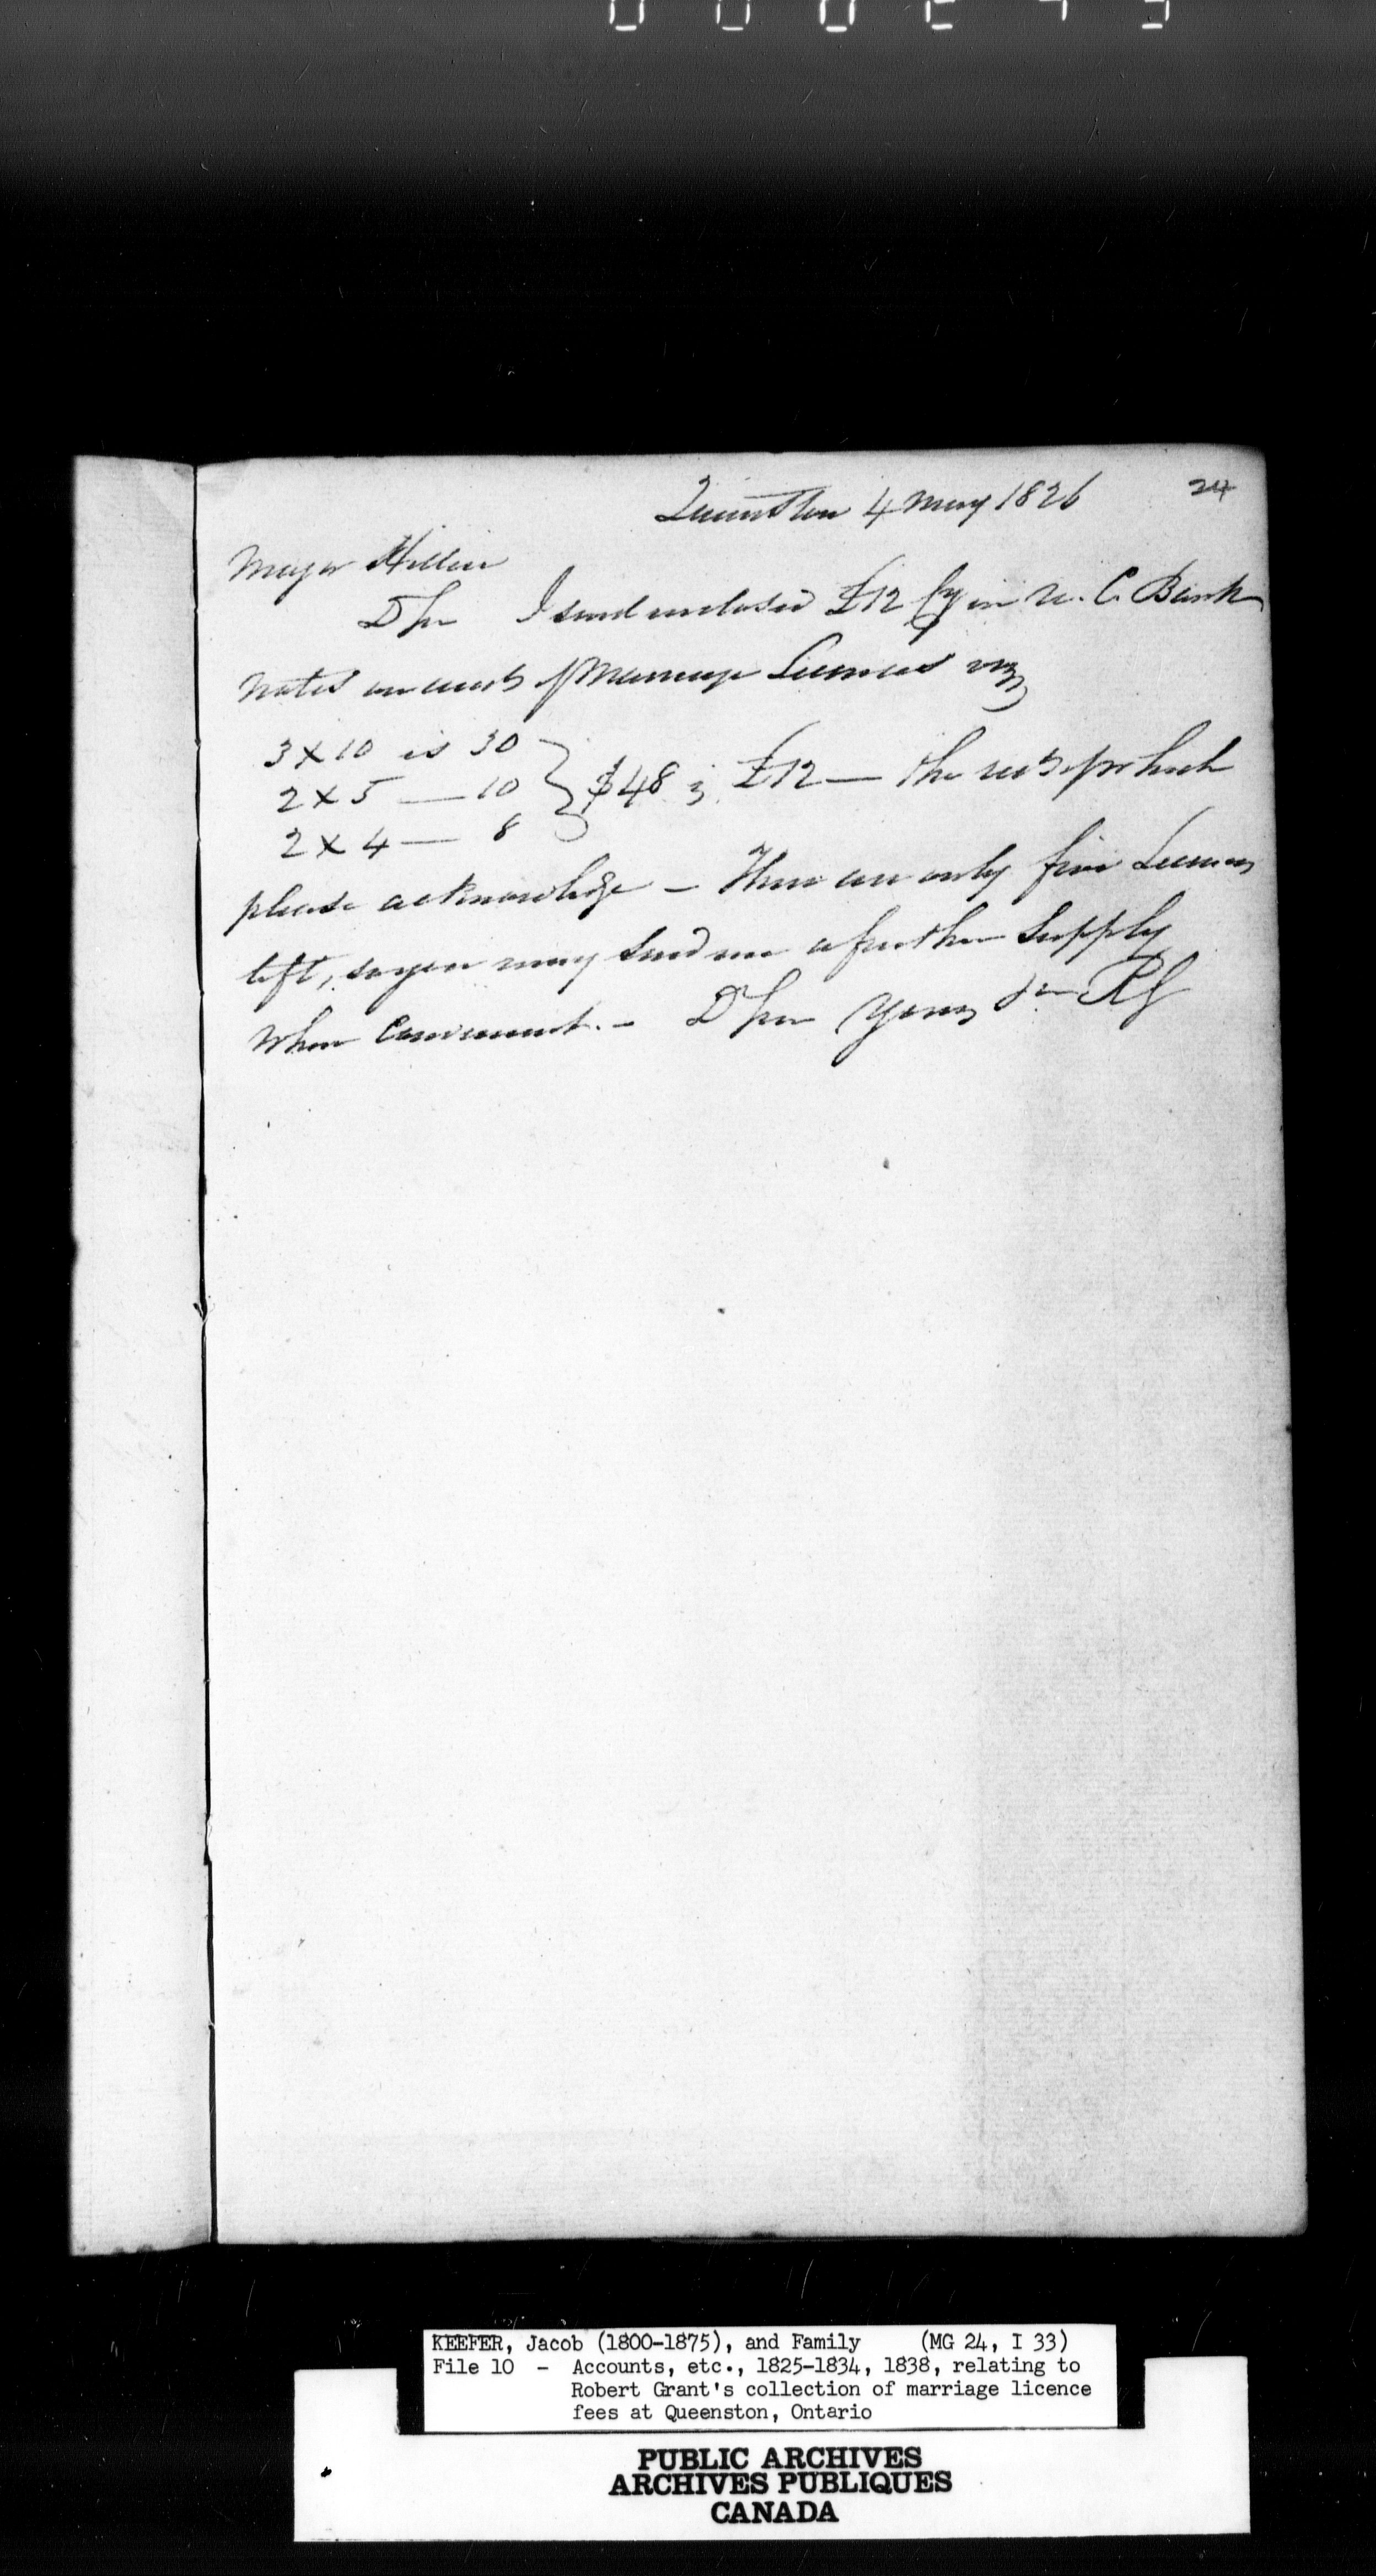 24
Queenston 4 May 1826
Major Hillier
D Sir I send enclosed £12 Cy in U. C. Bank
notes on acct of Marriage Licences viz
3 x 10 is 30
2 x 5 — 10 } $48 is £12 — the rect of which
2 x 4 — 8
please acknowledge — There are only five Licences
left, so you may send me a further Supply
when Convenient. — D Sir Yours RG
KEEFER, Jacob (1800-1875), and Family (MG 24, I 33)
File 10 - Accounts, etc., 1825-1834, 1838, relating to
Robert Grant's collection of marriage licence
fees at Queenston, Ontario
PUBLIC ARCHIVES
ARCHIVES PUBLIQUES
CANADA